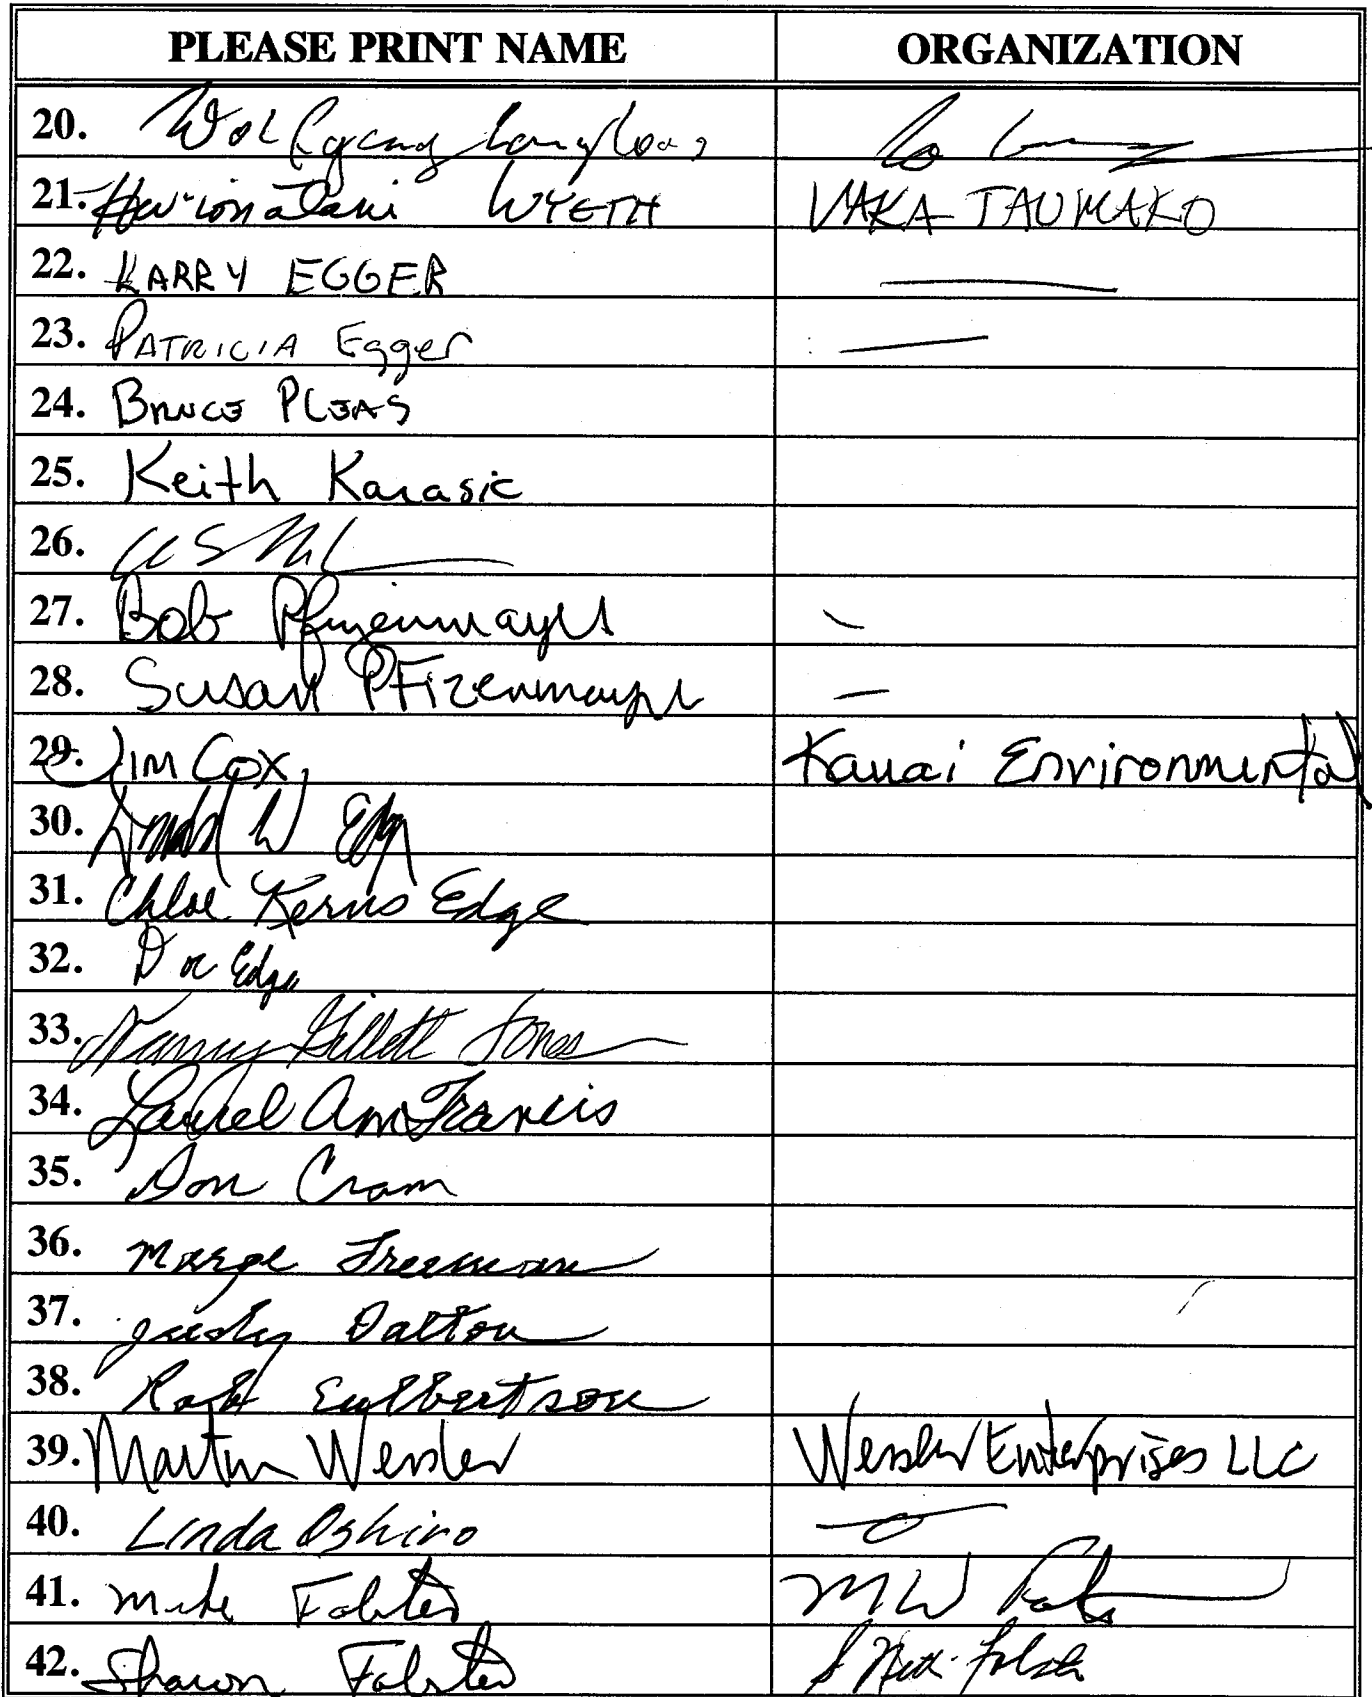 PLEASE PRINT NAME ORGANIZATION
20. Wolfgang
21. WYETH VAKA TAUMAKO
22. LARRY EGGER
23. PATRICIA Egger
24. BRUCE PLEAS
25. Keith Karasic
26.
27. Bob Pfizenmayer
28. Susan PFizenmayer
29. Jim Cox Kauai Environmental
30. W Edge
31. Chloe Kerns Edge
32. Edge
33. Nancy Gillett Jones
34. Laurel Ann Francis
35. Don Cram
36. Marge Freeman
37. Judy Dalton
38. Culbertson
39. Martin Wessler Wessler Enterprises LLC
40. Linda Oshiro
41. Mike Fabster MW
42. Sharon Fabster